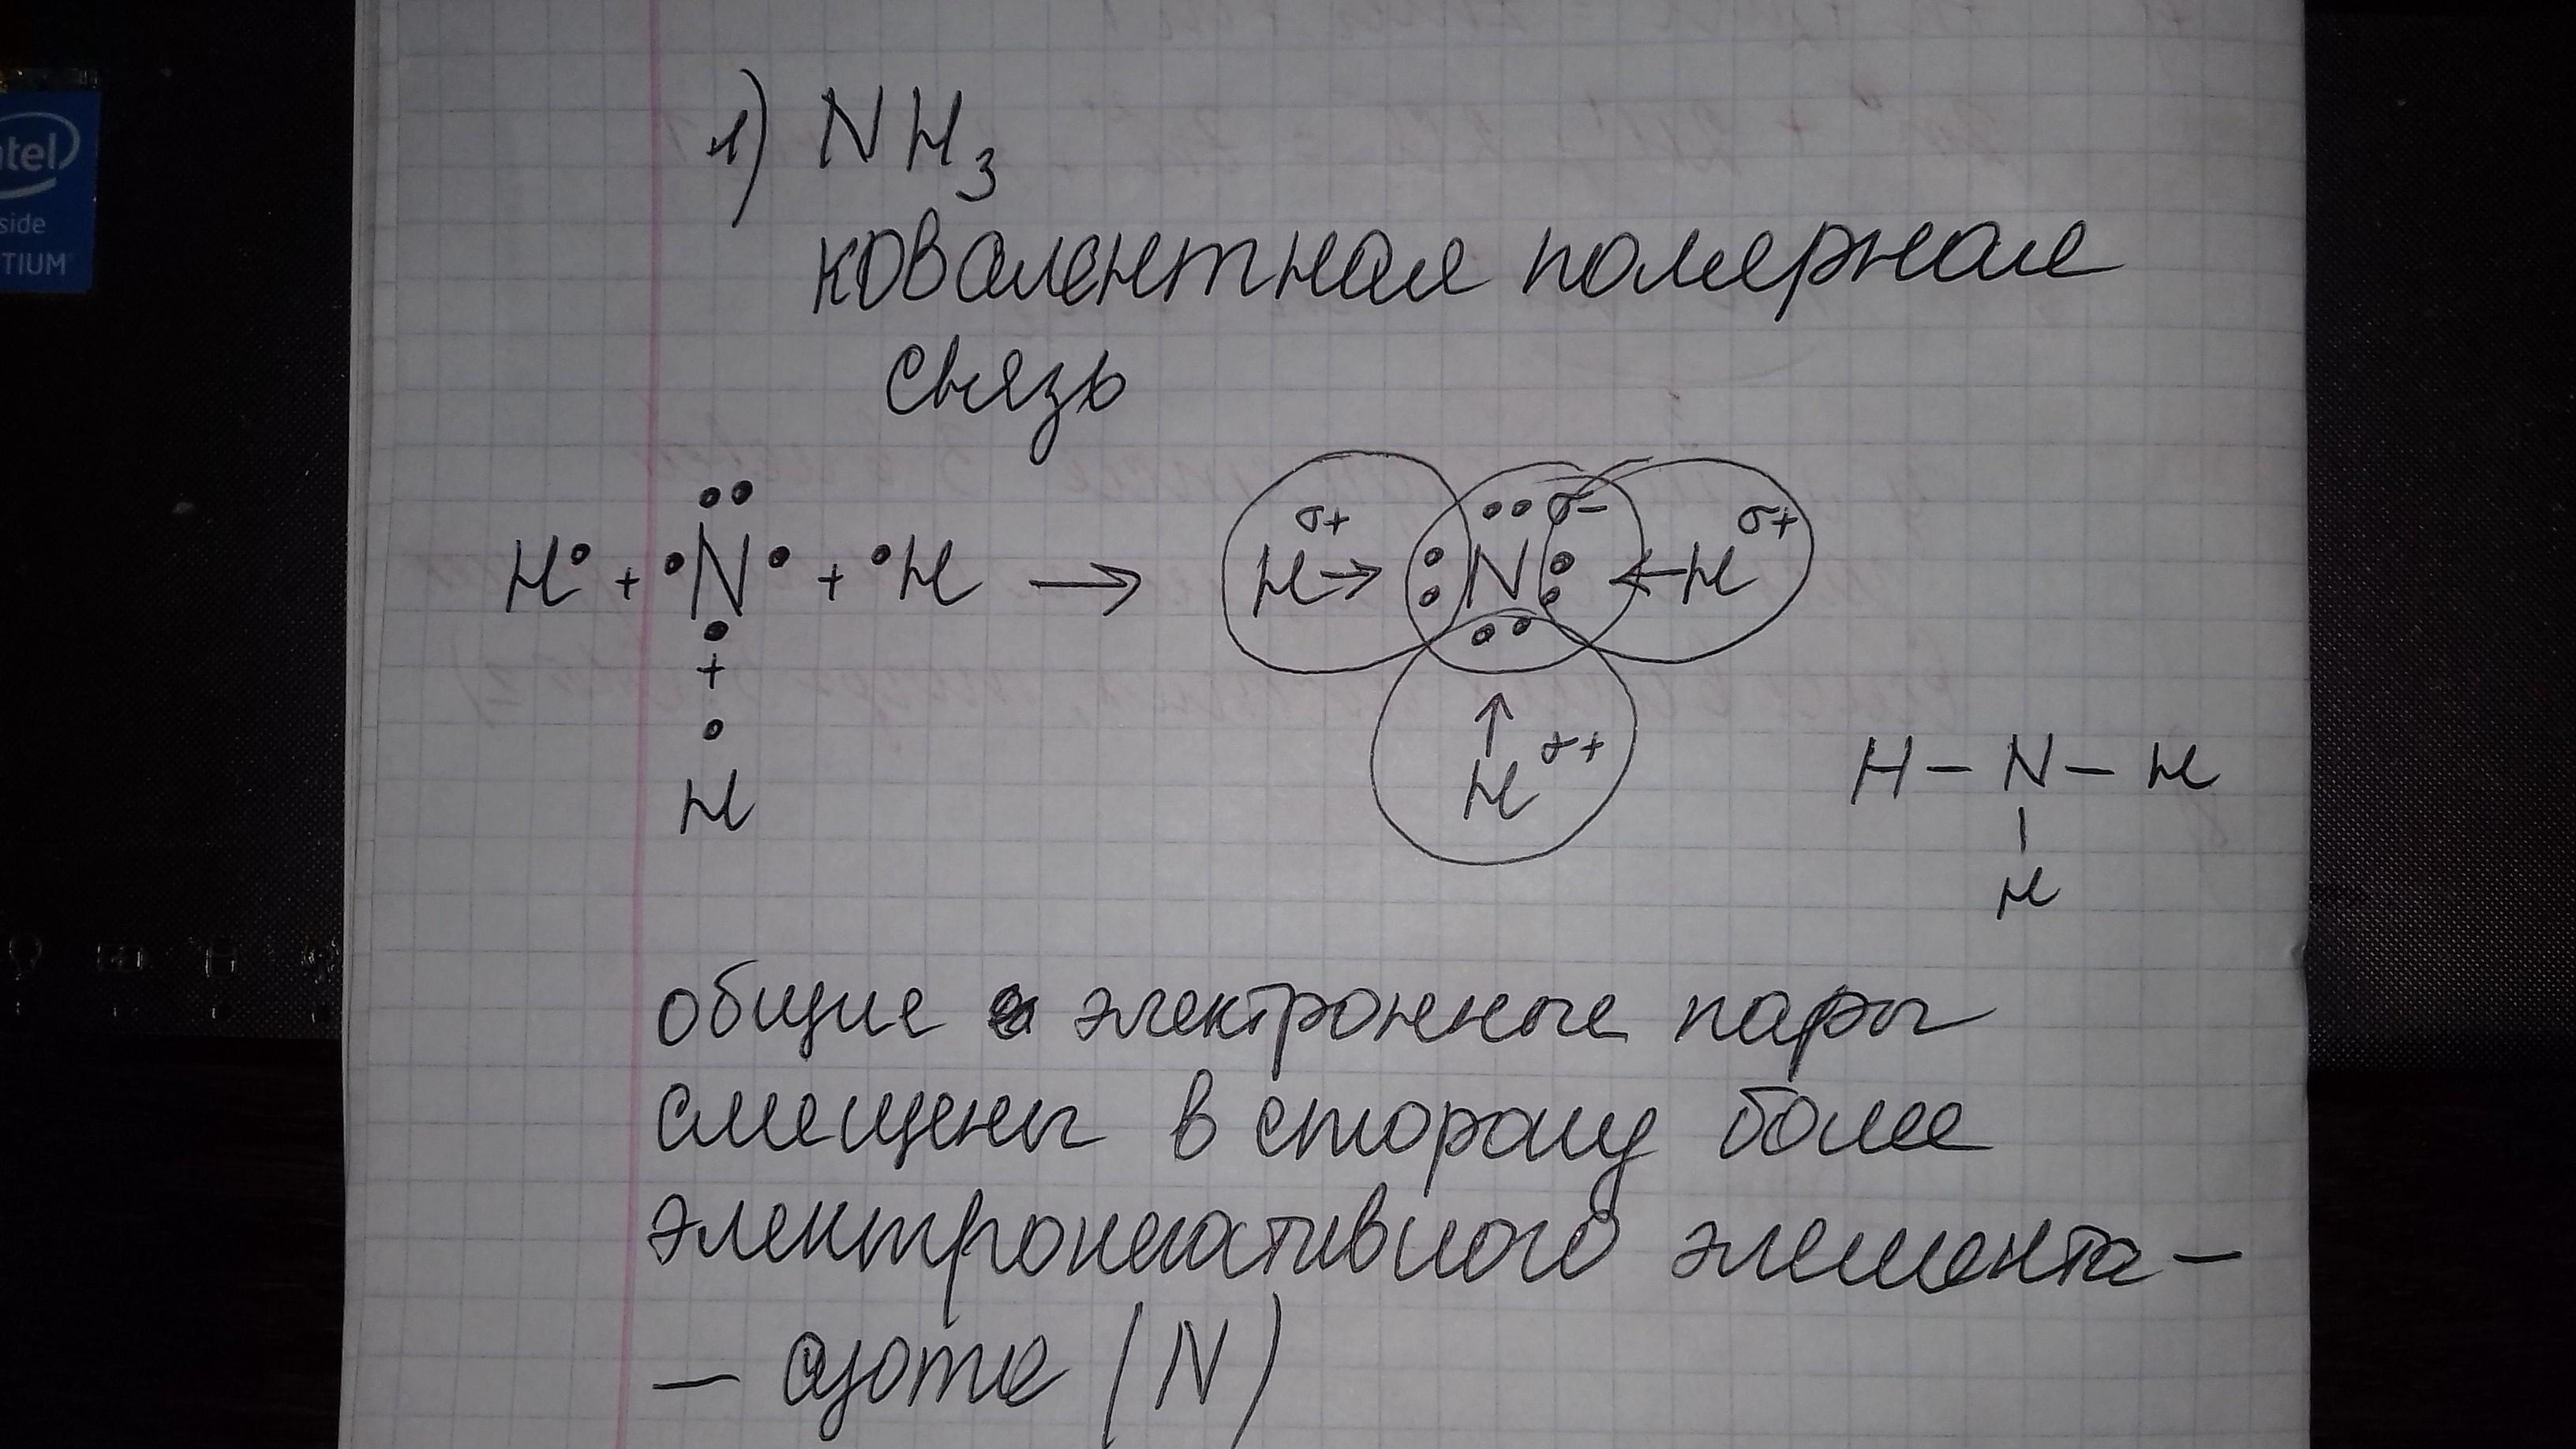 ntel
side
TIUM
1) NH3
ковалентная полярная
связь
H• + •N• + •H → H σ+ → : N σ- : ← H σ+
+
•
H
↑
H σ+
H – N – H
|
H
общие электронные пары
смещены в сторону более
электронегативного элемента –
– азота (N)